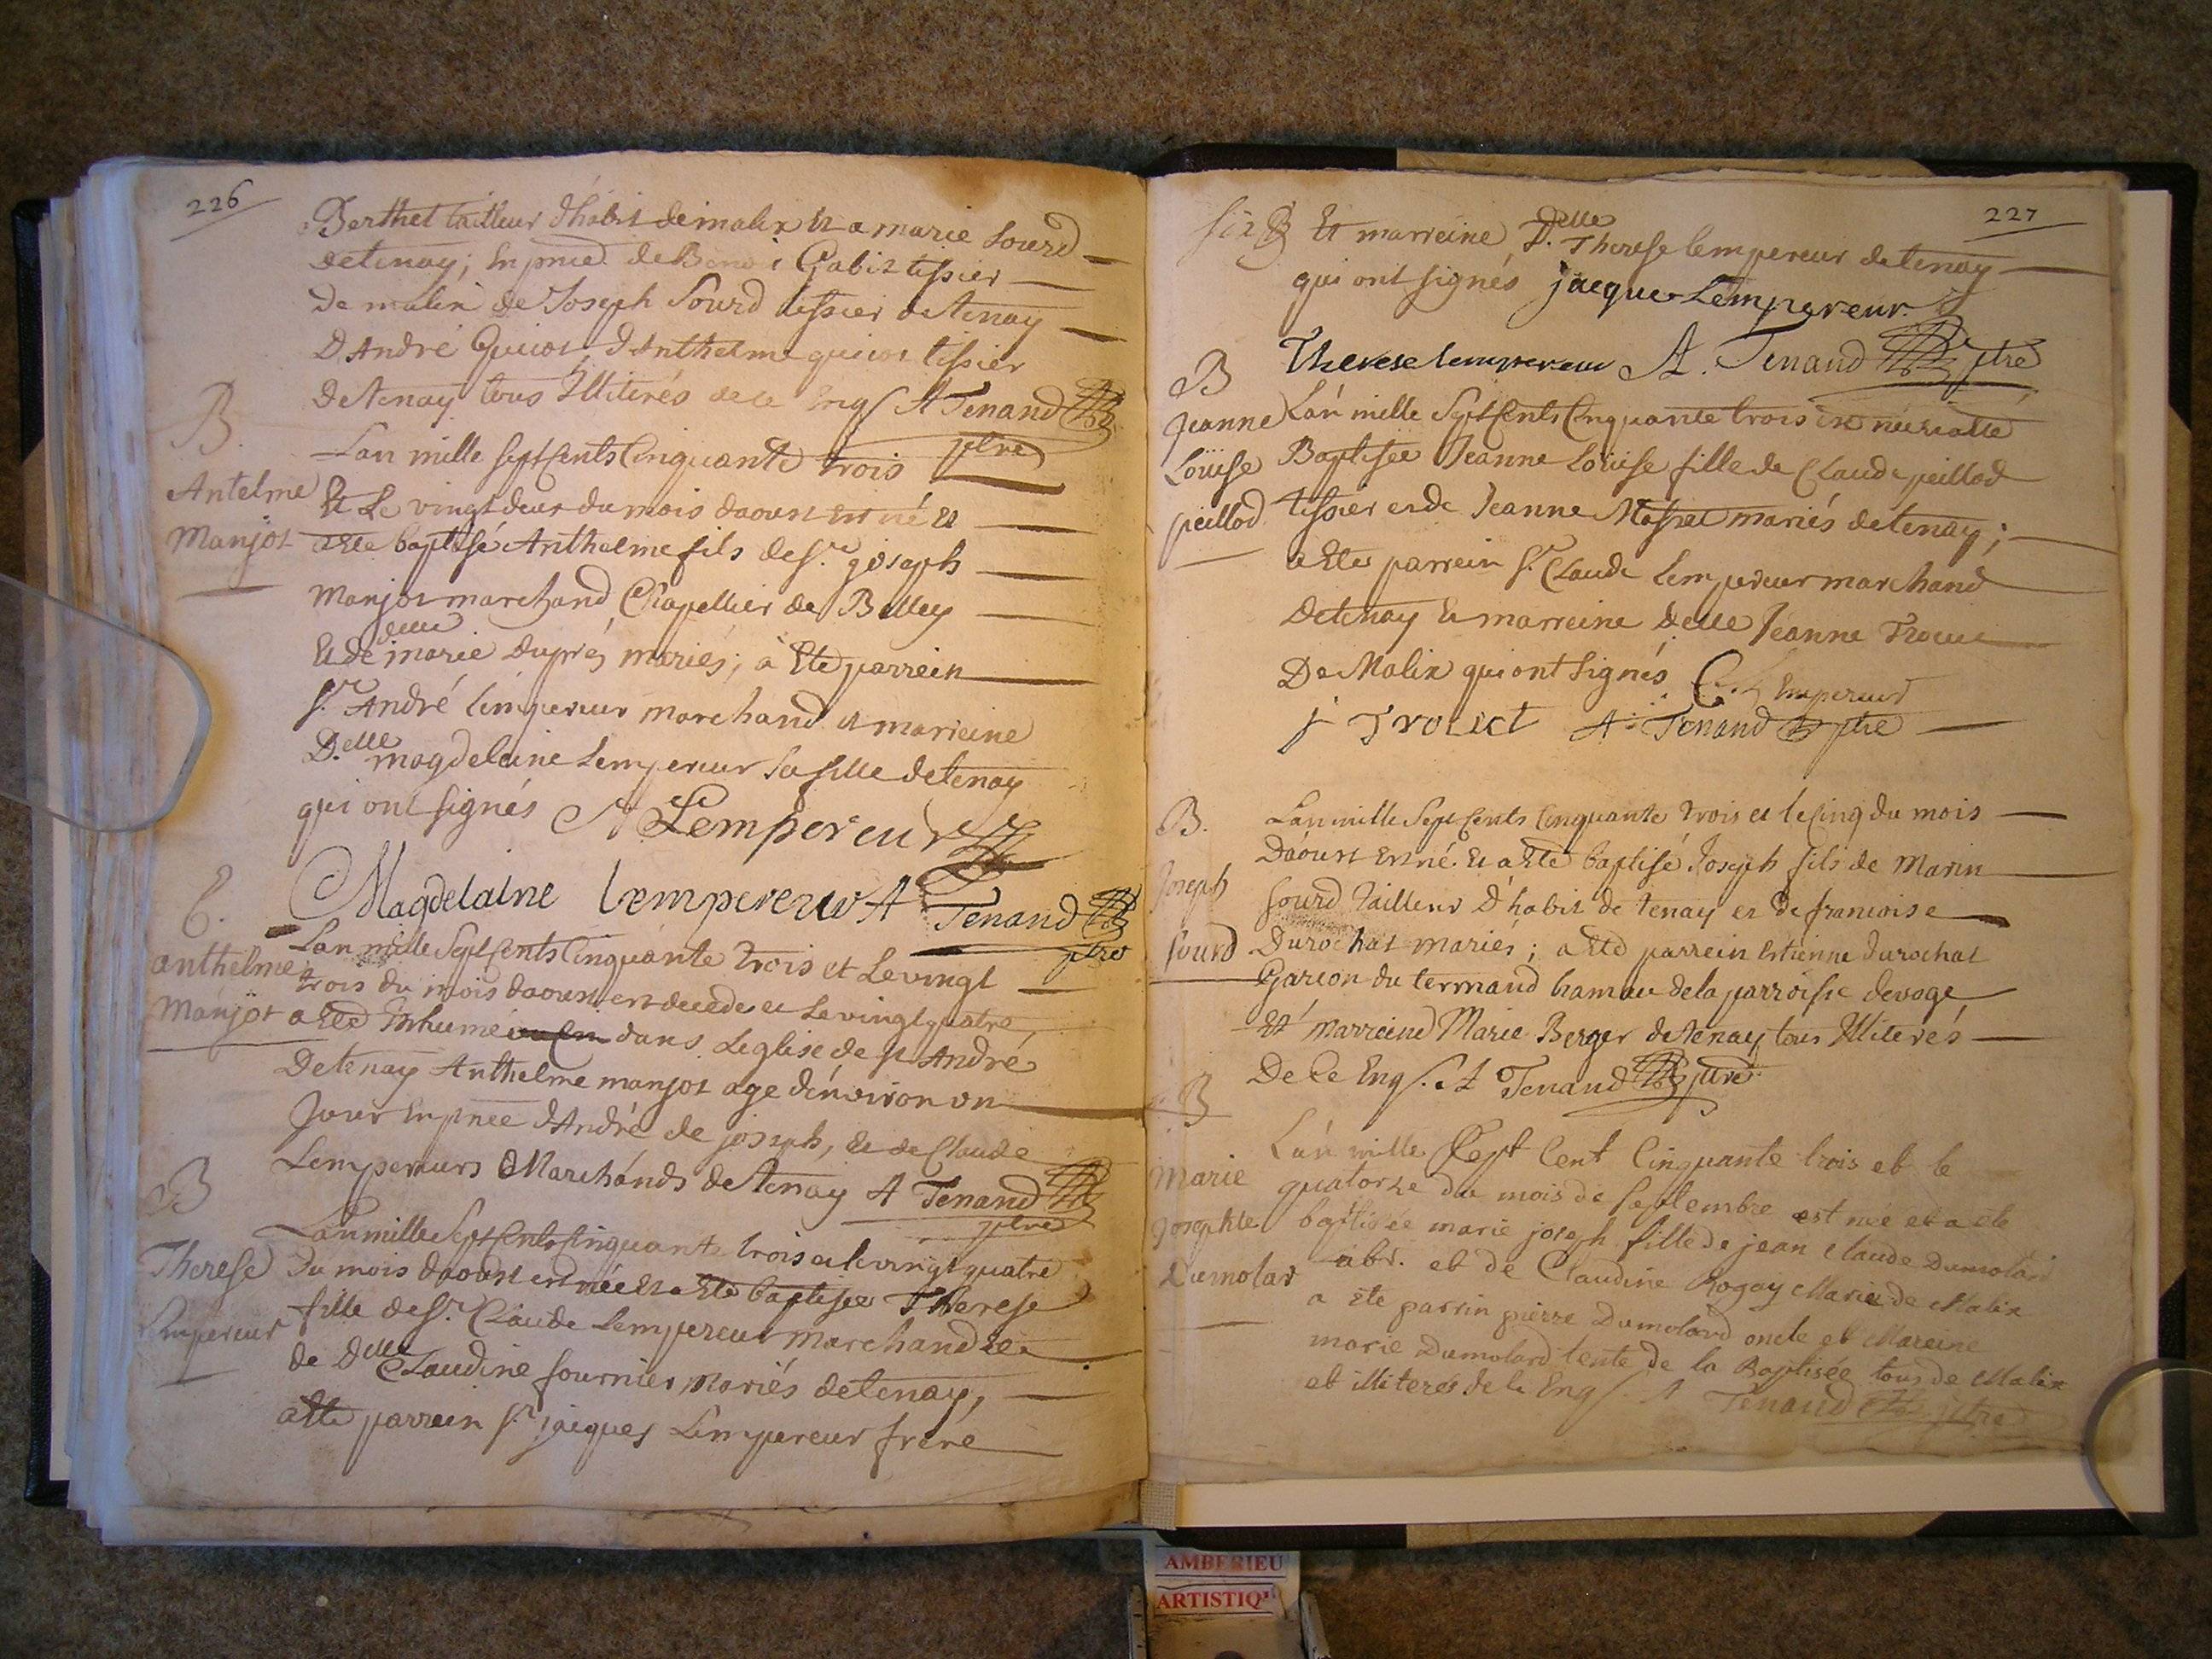 226
Berthet tailleur d'habit de malix et a marie Sourd
de tenay; En pnce de Gabit tissier
de malix de Joseph Sourd tissier de tenay
D'André Guiot, d'Anthelme guiot tissier
de tenay tous Illiterés de ce Enq/ A Tenand
ptre
B.
Antelme
Manjot
Lan mille sept Cents Cinquante trois
Et Le vingt deux du mois daoust est né et
a Ete baptisé Anthelme fils de Sr. joseph
Manjot marchand Chapellier de Belley
Et de delle marie duprés mariés; à Ete parrein
Sr. André lempereur marchand et marreine
Delle magdeleine Lempereur sa fille de tenay
qui ont signés A Lempereur
Magdelaine lempereur A Tenand
ptre
E.
anthelme
Manjot
Lan mille Sept Cents Cinquante trois et Le vingt
trois du mois daoust est decedé et Le vingt quatre
a Eté Inhumé dans Leglise de St André
De tenay Anthelme manjot age d'environ un
Jour En pnce d'André de joseph, et de Claude
Lempereurs Marchands de tenay A Tenand
ptre
B
Therese
Lempereur
Lan mille Sept Cents Cinquante trois et le vingt quatre
Du mois daoust est née et a Ete baptisee Therese
fille de Sr. Claude Lempereur Marchand et
de Delle Claudine fournier Mariés de tenay,
a Ete parrein Sr jacques Lempereur frere
227
Et marreine Delle Therese lempereur de tenay
qui ont signés jacque Lempereur
Therese lempereur A. Tenand ptre
B
Jeanne
Louise
peillod
Lan mille Sept Cents Cinquante trois est née et a Ete
Baptisée Jeanne Louise fille de Claude peillod
tissier et de Jeanne mariés de tenay;
a Ete parrein Sr. Claude Lempereur marchand
De tenay Et marreine Delle Jeanne
De Malix qui ont signés C. Lempereur
j A. Tenand ptre
B.
Joseph
sourd
Lan mille Sept Cents Cinquante trois et le Cinq du mois
Daoust est né Et a Eté baptisé Joseph fils de Marin
Sourd Tailleur d'habit de tenay et de francoise
Durochat mariés; a Eté parrein Estienne durochat
Garcon du termand hamau de la parroisse devoge
Et Marreine Marie Berger de tenay tous Illiterés
De Ce Enq/. A Tenand ptre
B
Marie
Josephte
Dumolar
Lan mille Sept Cent Cinquante trois et le
quatorze du mois de septembre est née et a ete
baptisée marie joseph fille de jean claude Dumolard
et de Claudine Rogay Marié de Malix
a ete parrin pierre Dumolard oncle et Mareine
marie Dumolard tente de la Baptisée tous de Malix
et illiterés de le Enq/ A Tenand ptre
AMBERIEU
ARTISTIQ